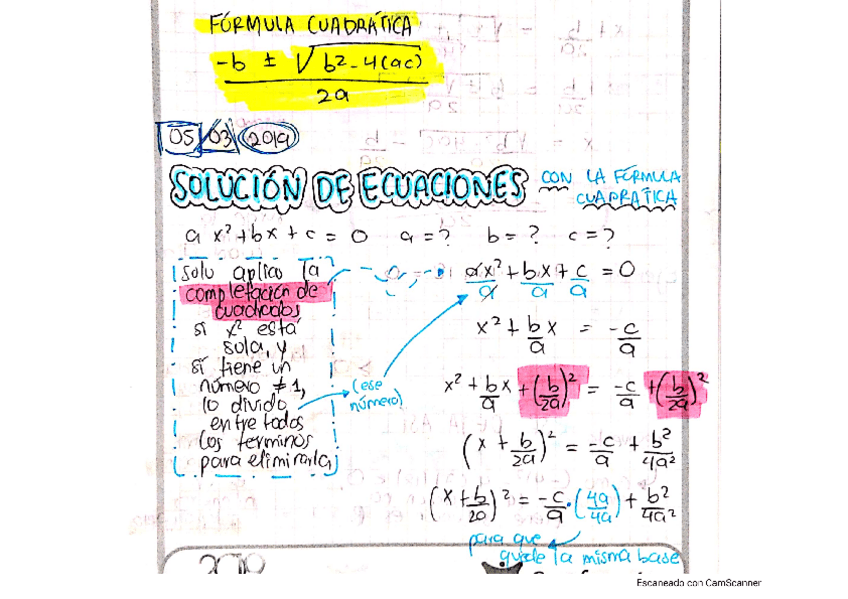 FÓRMULA CUADRÁTICA
-b ± √b²-4(ac)
2a
05/03/2019
SOLUCIÓN DE ECUACIONES CON LA FÓRMULA CUADRÁTICA
a x² + bx + c = 0 a=? b=? c=?
solo aplico la
completación de
cuadrados
si x² está
sola, y
si tiene un
número ≠ 1,
lo divido
entre todos
los terminos
para eliminarla
(ese
número)
ax²/a + bx/a + c/a = 0
x² + b/a x = -c/a
x² + b/a x + (b/2a)² = -c/a + (b/2a)²
(x + b/2a)² = -c/a + b²/4a²
(x + b/2a)² = -c/a · (4a/4a) + b²/4a²
para que
quede la misma base
Escaneado con CamScanner